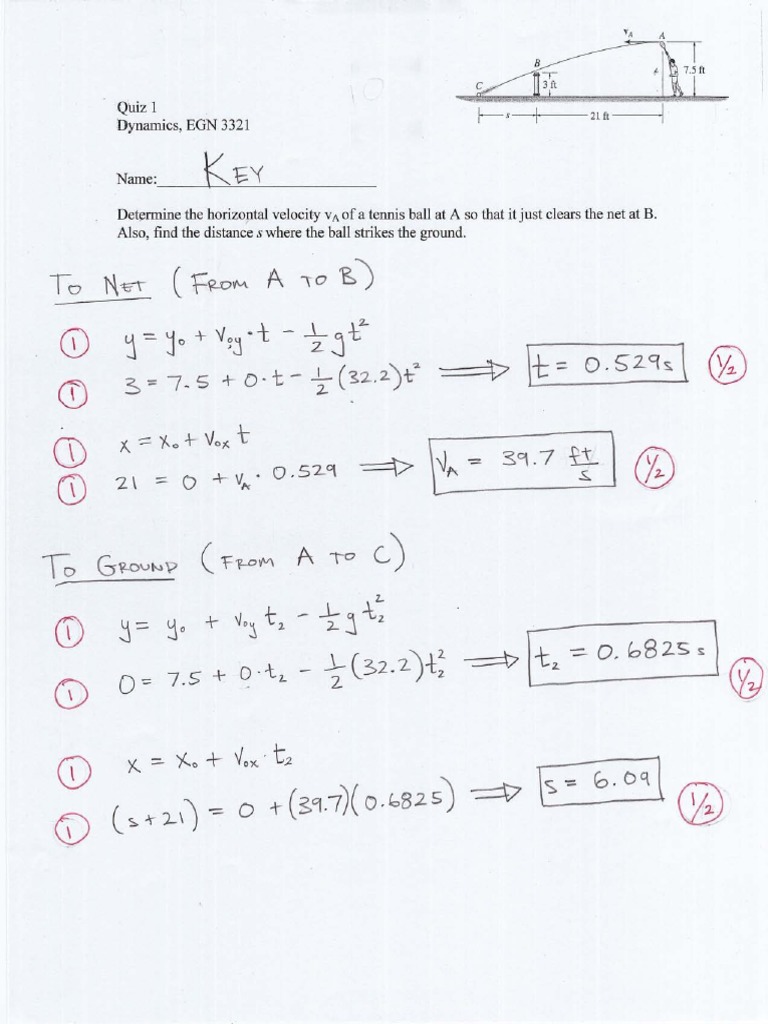 v_A A
B
7.5 ft
C
3 ft
s 21 ft
10
Quiz 1
Dynamics, EGN 3321
Name: KEY
Determine the horizontal velocity v_A of a tennis ball at A so that it just clears the net at B.
Also, find the distance s where the ball strikes the ground.
TO NET (FROM A TO B)
① y = y₀ + V₀y · t - 1/2 gt²
① 3 = 7.5 + 0·t - 1/2 (32.2)t² ⟹ t = 0.529s 1/2
① x = x₀ + V₀x t
① 21 = 0 + V_A · 0.529 ⟹ V_A = 39.7 ft/s 1/2
TO GROUND (FROM A TO C)
① y = y₀ + V₀y t₂ - 1/2 g t₂²
① 0 = 7.5 + 0·t₂ - 1/2 (32.2)t₂² ⟹ t₂ = 0.6825 s 1/2
① x = x₀ + V₀x · t₂
① (s+21) = 0 + (39.7)(0.6825) ⟹ s = 6.09 1/2